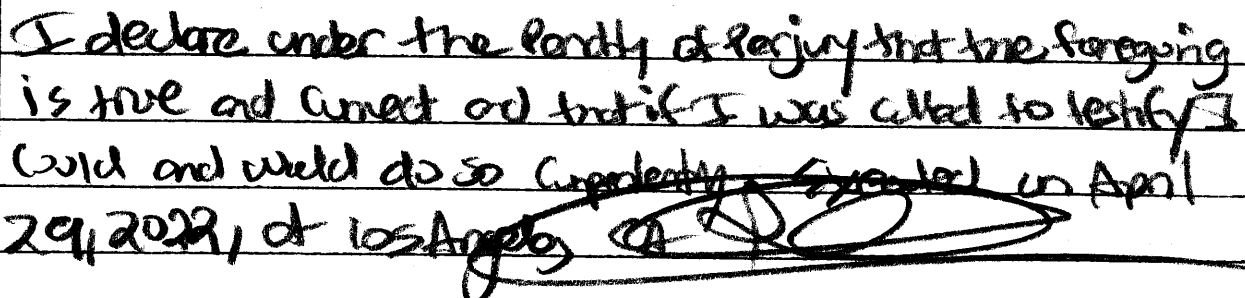 I declare under the Penalty of Perjury that the foregoing
is true and Correct and that if I was called to testify I
Could and would do so Competently. Executed on April
29, 2022, at Los Angeles CA